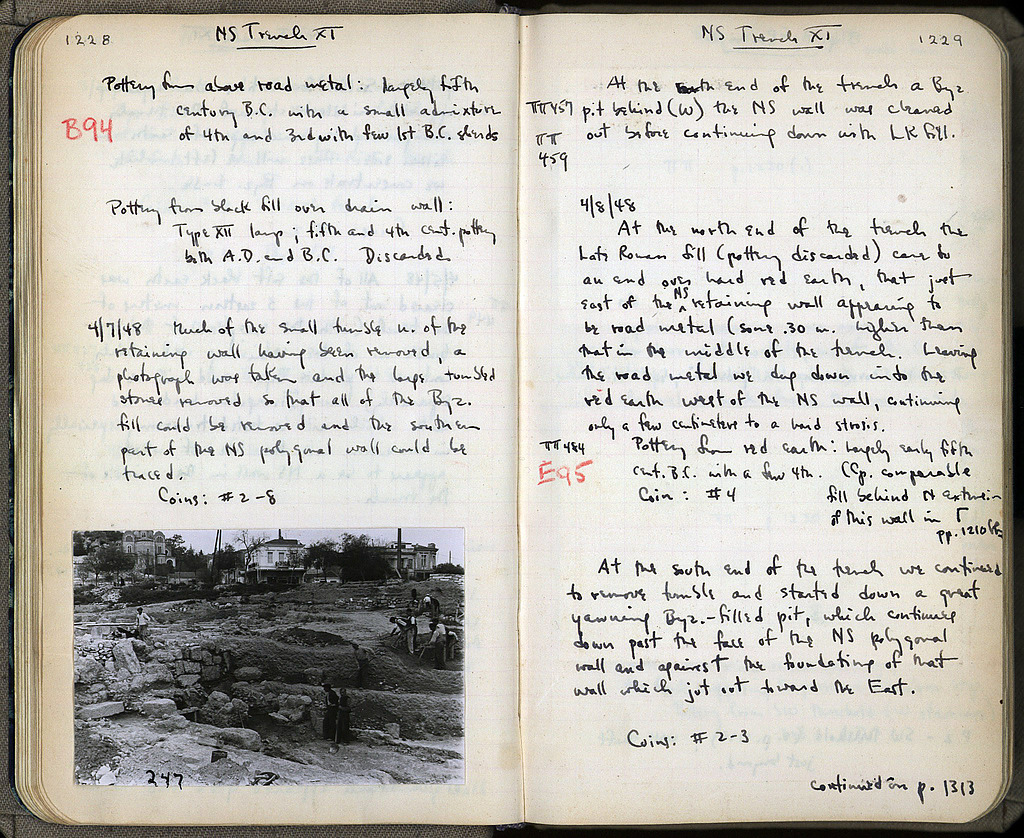 1228
NS Trench XI
Pottery from above road metal: largely fifth
century B.C. with a small admixture
B94
of 4th and 3rd with few 1st B.C. sherds
Pottery from black fill over drain wall:
Type XII lamp; fifth and 4th cent. pottery
both A.D. and B.C. Discarded
4/7/48 Much of the small tumble n. of the
retaining wall having been removed, a
photograph was taken and the large tumbled
stones removed so that all of the Byz.
fill could be removed and the southern
part of the NS polygonal wall could be
traced.
Coins: #2-8
247
NS Trench XI
1229
At the end of the trench a Byz.
ΠΠ457 pit behind (W) the NS wall was cleaned
out before continuing down with LR fill.
ΠΠ
459
4/8/48
At the north end of the trench the
Late Roman fill (pottery discarded) came to
an end over hard red earth, that just
east of the NS retaining wall appearing to
be road metal (some .30 m. higher than
that in the middle of the trench. Leaving
the road metal we dug down into the
red earth west of the NS wall, continuing
only a few centimeters to a hard stosis.
ΠΠ484
Pottery from red earth: largely early fifth
E95
cent. B.C. with a few 4th. (Cp. comparable
Coin: #4
fill behind N extension
of this wall in Γ
pp. 1210ff.
At the south end of the trench we continued
to remove tumble and started down a great
yawning Byz.-filled pit, which continues
down past the face of the NS polygonal
wall and against the foundation of that
wall which jut out toward the East.
Coins: #2-3
continued on p. 1313